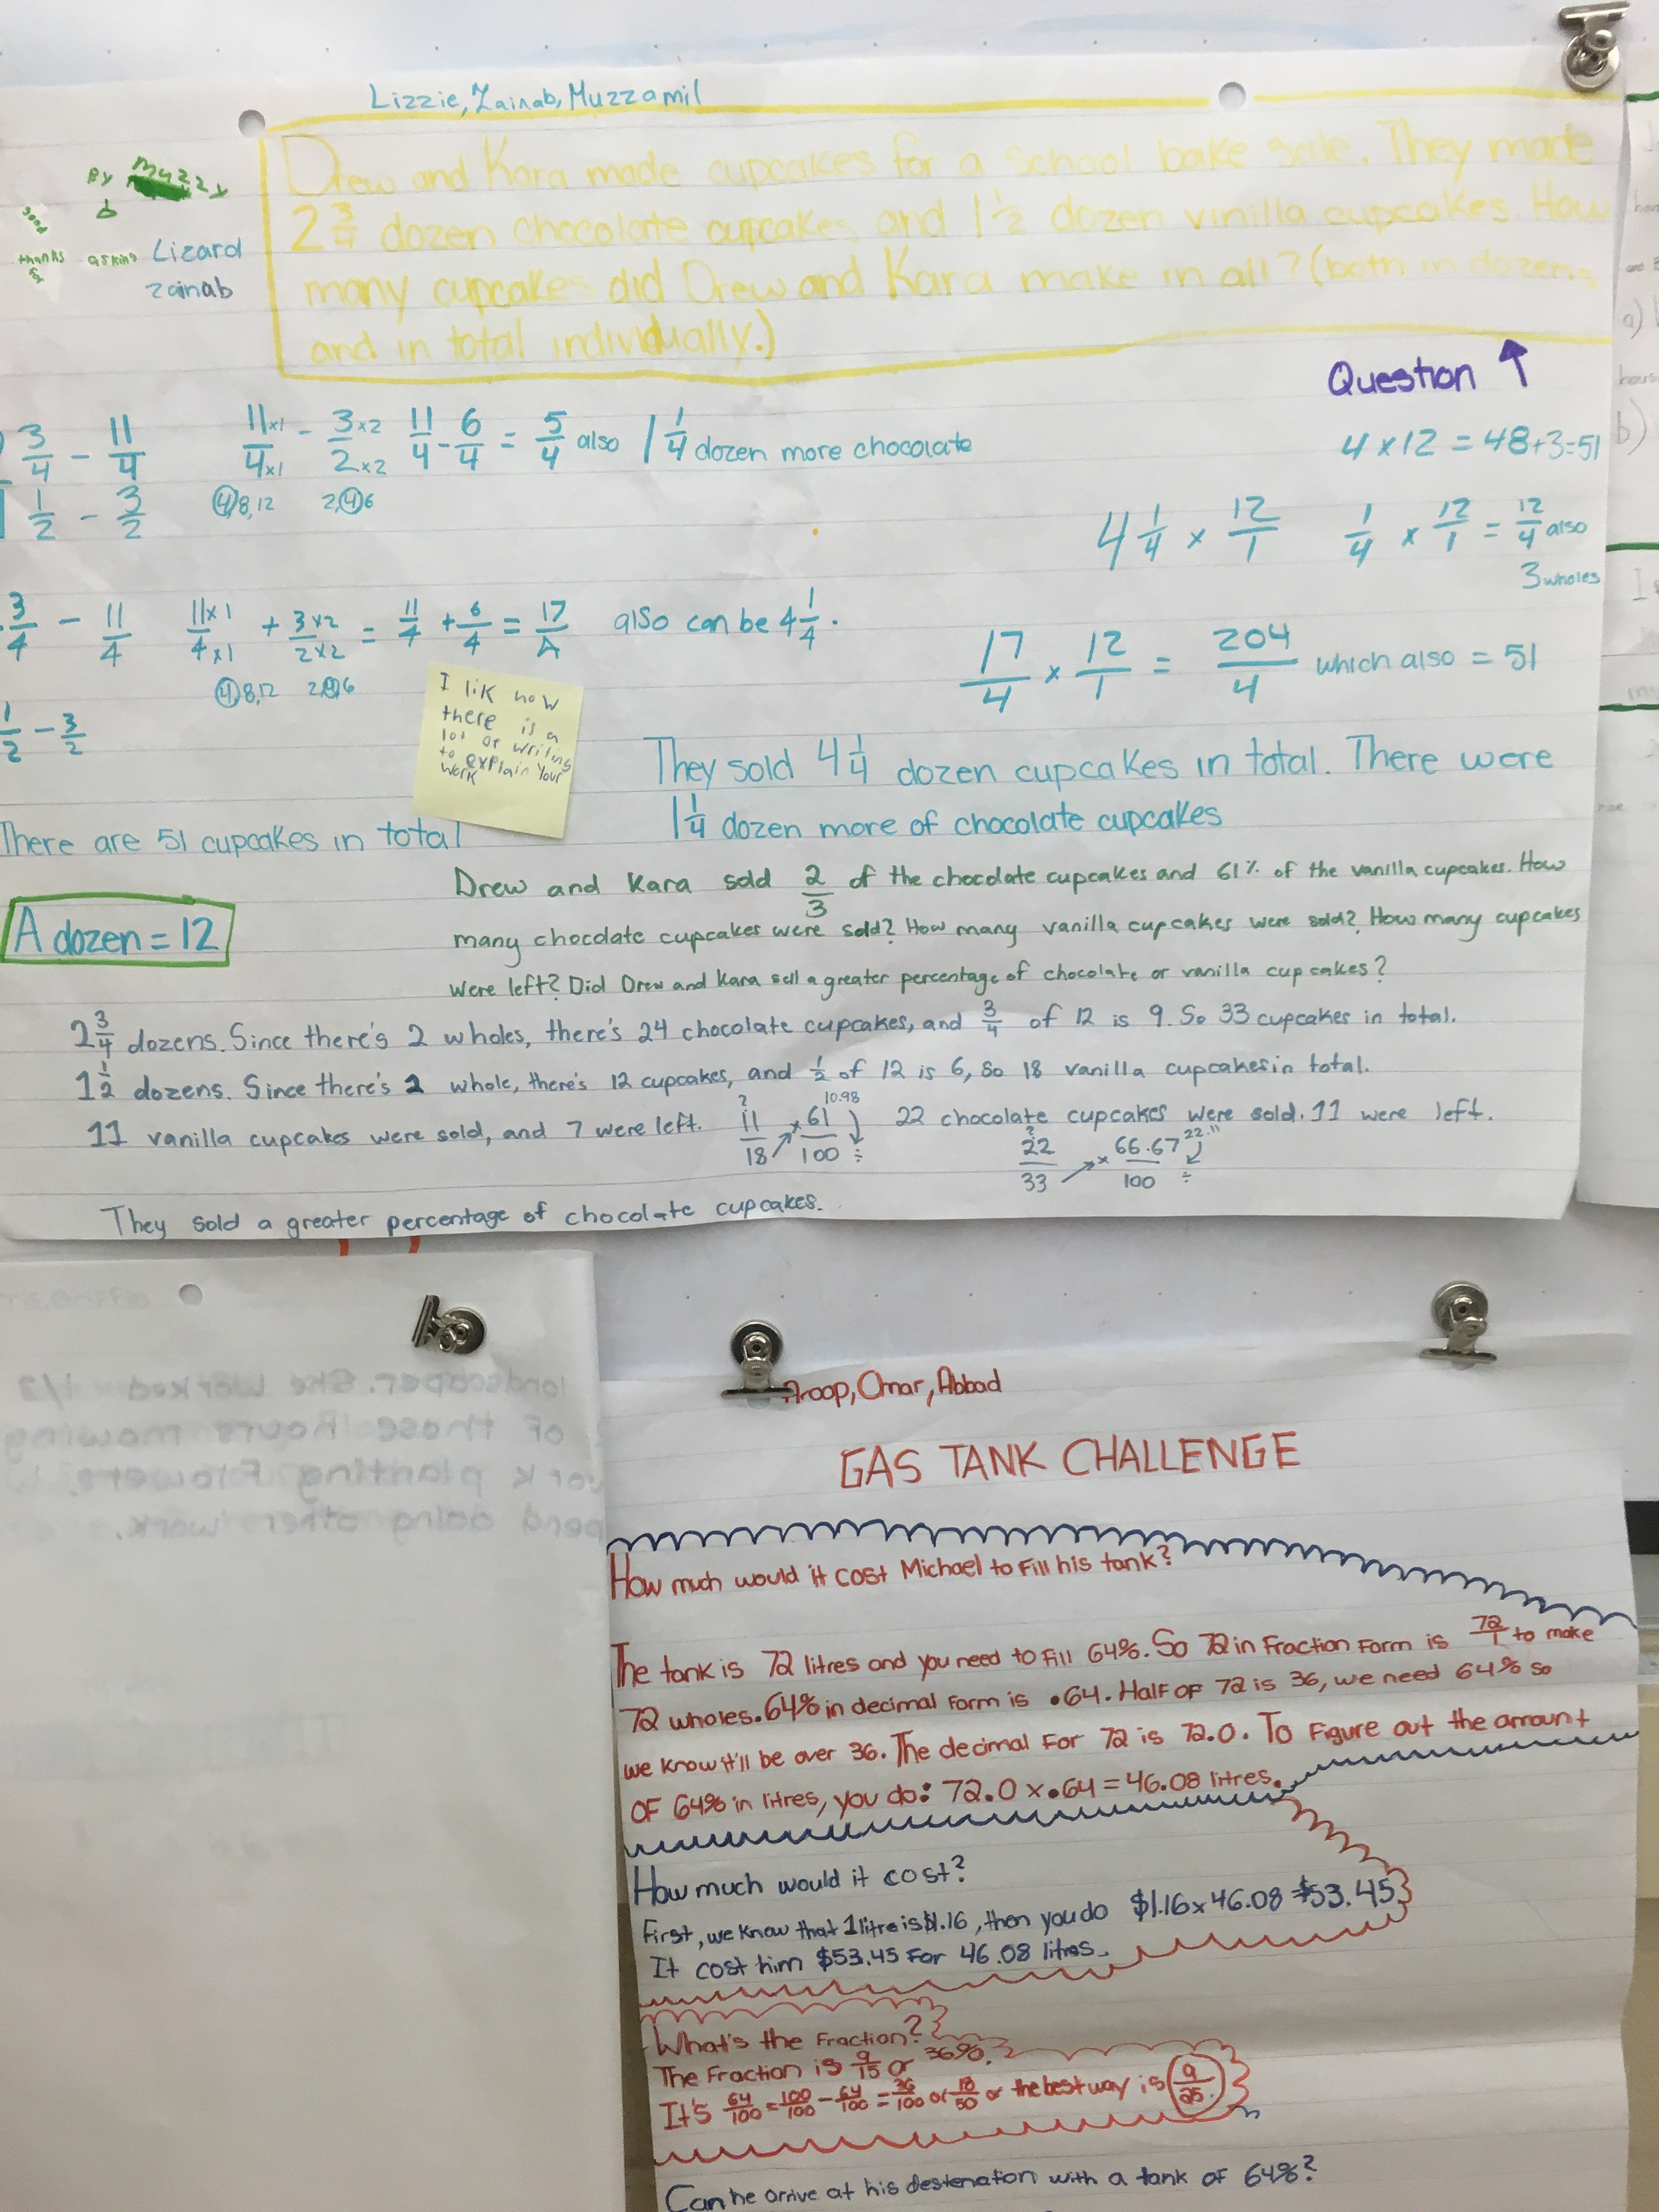 Lizzie, Zainab, Muzzamil
By Muzzy
thanks asking Lizard
Zainab
Drew and Kara made cupcakes for a school bake sale. They made
2 3/4 dozen chocolate cupcakes and 1 1/2 dozen vinilla cupcakes. How
many cupcakes did Drew and Kara make in all? (both in dozens
and in total individually.)
Question ↑
3/4 - 11/4 11×1/4×1 - 3×2/2×2 11/4 - 6/4 = 5/4 also 1 1/4 dozen more chocolate
1 1/2 - 3/2 4,8,12 2,4,6
4 x 12 = 48+3=51
4 1/4 x 12/1 1/4 x 12/1 = 12/4 also
3 wholes
3/4 - 11/4 11×1/4×1 + 3×2/2×2 = 11/4 + 6/4 = 17/4 also can be 4 1/4.
4,8,12 2,4,6
1/2 - 3/2
17/4 x 12/1 = 204/4 which also = 51
I lik how
there is a
lot or writing
to explain your
work
They sold 4 1/4 dozen cupcakes in total. There were
1 1/4 dozen more of chocolate cupcakes
There are 51 cupcakes in total
A dozen = 12
Drew and Kara sold 2/3 of the chocolate cupcakes and 61% of the vanilla cupcakes. How
many chocolate cupcakes were sold? How many vanilla cupcakes were sold? How many cupcakes
were left? Did Drew and Kara sell a greater percentage of chocolate or vanilla cupcakes?
2 3/4 dozens. Since there's 2 wholes, there's 24 chocolate cupcakes, and 3/4 of 12 is 9. So 33 cupcakes in total.
1 1/2 dozens. Since there's 1 whole, there's 12 cupcakes, and 1/2 of 12 is 6, so 18 vanilla cupcakes in total.
11 vanilla cupcakes were sold, and 7 were left. ? 11/18 x 61/100 10.98 ÷ 22 chocolate cupcakes were sold. 11 were left.
? 22/33 x 66.67/100 22.11 ÷
They sold a greater percentage of chocolate cupcakes.
landscaper. She worked 1/3
of those hours mowing
work planting flowers.
pend doing other work.
Aroop, Omar, Abbad
GAS TANK CHALLENGE
How much would it cost Michael to fill his tank?
The tank is 72 litres and you need to fill 64%. So 72 in fraction form is 72/1 to make
72 wholes. 64% in decimal form is .64. Half of 72 is 36, we need 64% so
we know it'll be over 36. The decimal for 72 is 72.0. To figure out the amount
of 64% in litres, you do: 72.0 x .64 = 46.08 litres.
How much would it cost?
First, we know that 1 litre is $1.16, then you do $1.16 x 46.08 = $53.45
It cost him $53.45 for 46.08 litres.
What's the fraction?
The fraction is 9/15 or 36%.
It's 64/100 = 100/100 - 64/100 = 36/100 or 18/50 or the best way is 9/25.
Can he arrive at his destenation with a tank of 64%?